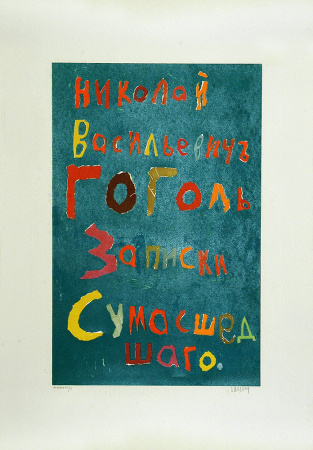 Николай
Васильевичъ
Гоголь
Записки
Сумасшед
шаго.